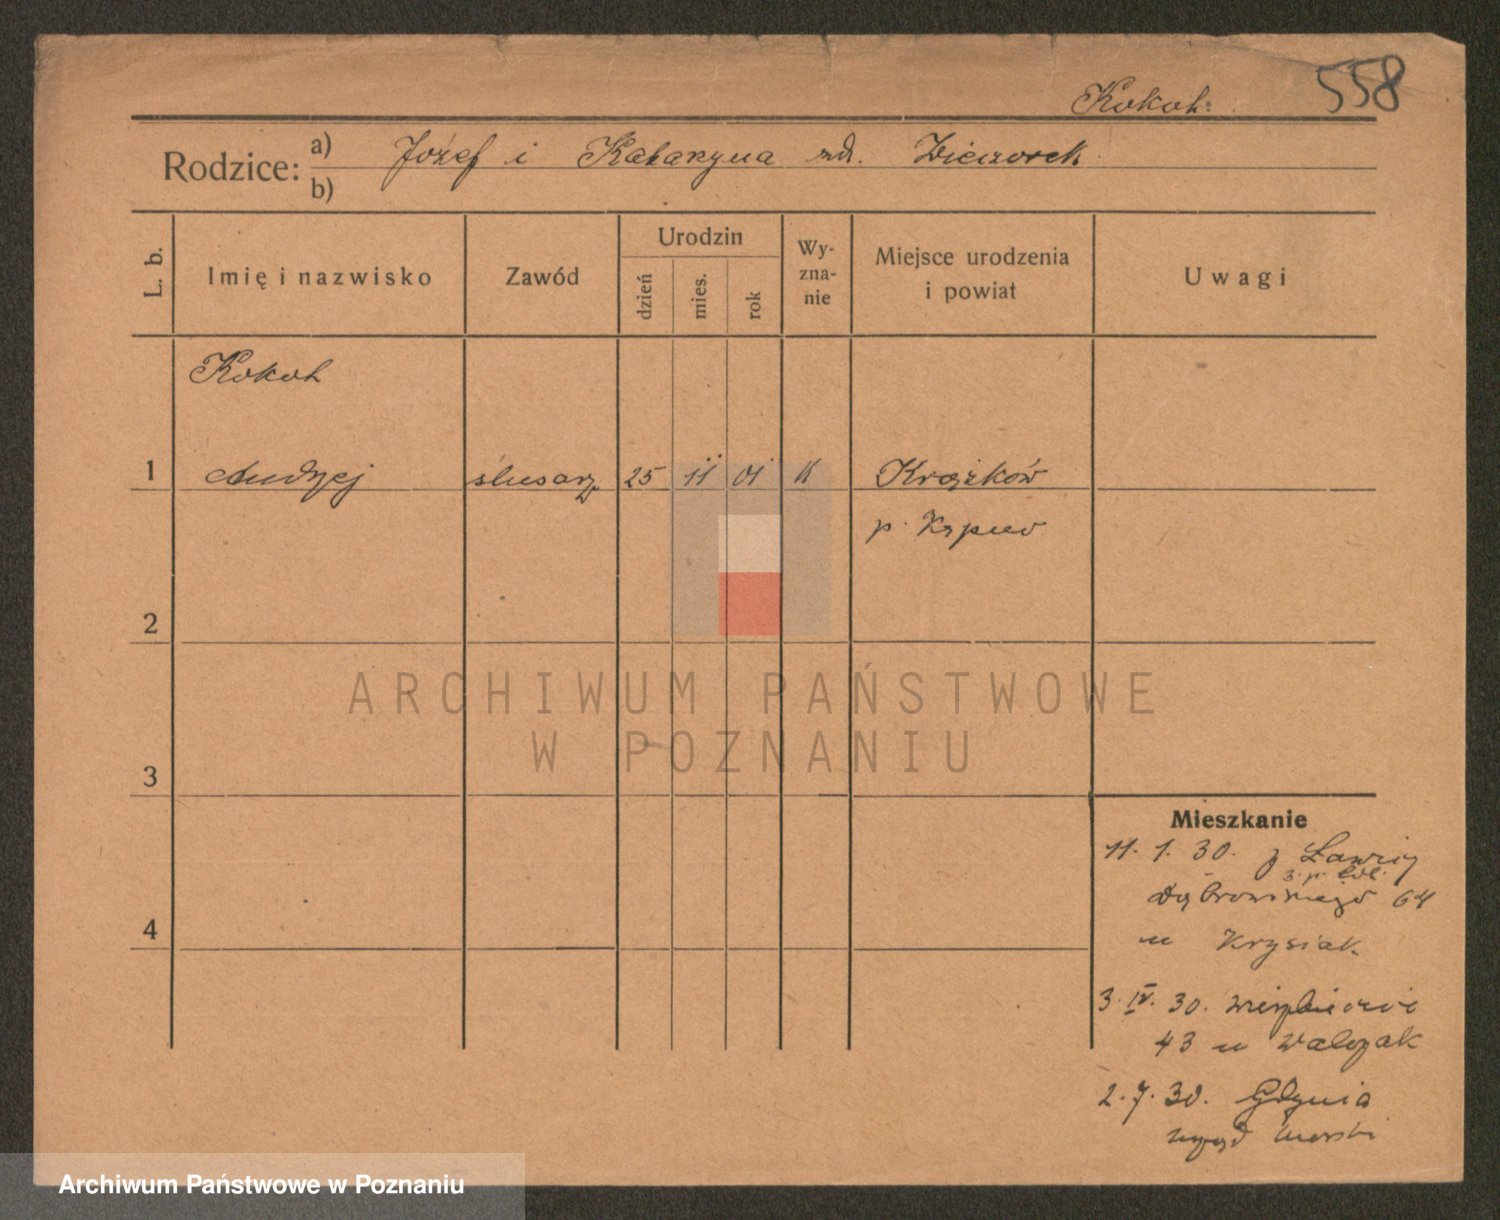 558
Kokot.
Rodzice: a) Józef i Katarzyna zd. Wieczorek
b)
L. b. Imię i nazwisko Zawód Urodzin dzień mies. rok Wyznanie Miejsce urodzenia i powiat Uwagi
Kokot
1 Andrzej ślusarz 25 11 01 K Krążków
p. Kępno
2
ARCHIWUM PAŃSTWOWE
W POZNANIU
3
Mieszkanie
11. 1. 30. z Ławicy
3. p. lot.
Dąbrowskiego 64
4
u Krysiak
3. IV. 30. Wierzbięcice
43 u Walczak
2. 7. 30. Gdynia
urząd morski
Archiwum Państwowe w Poznaniu